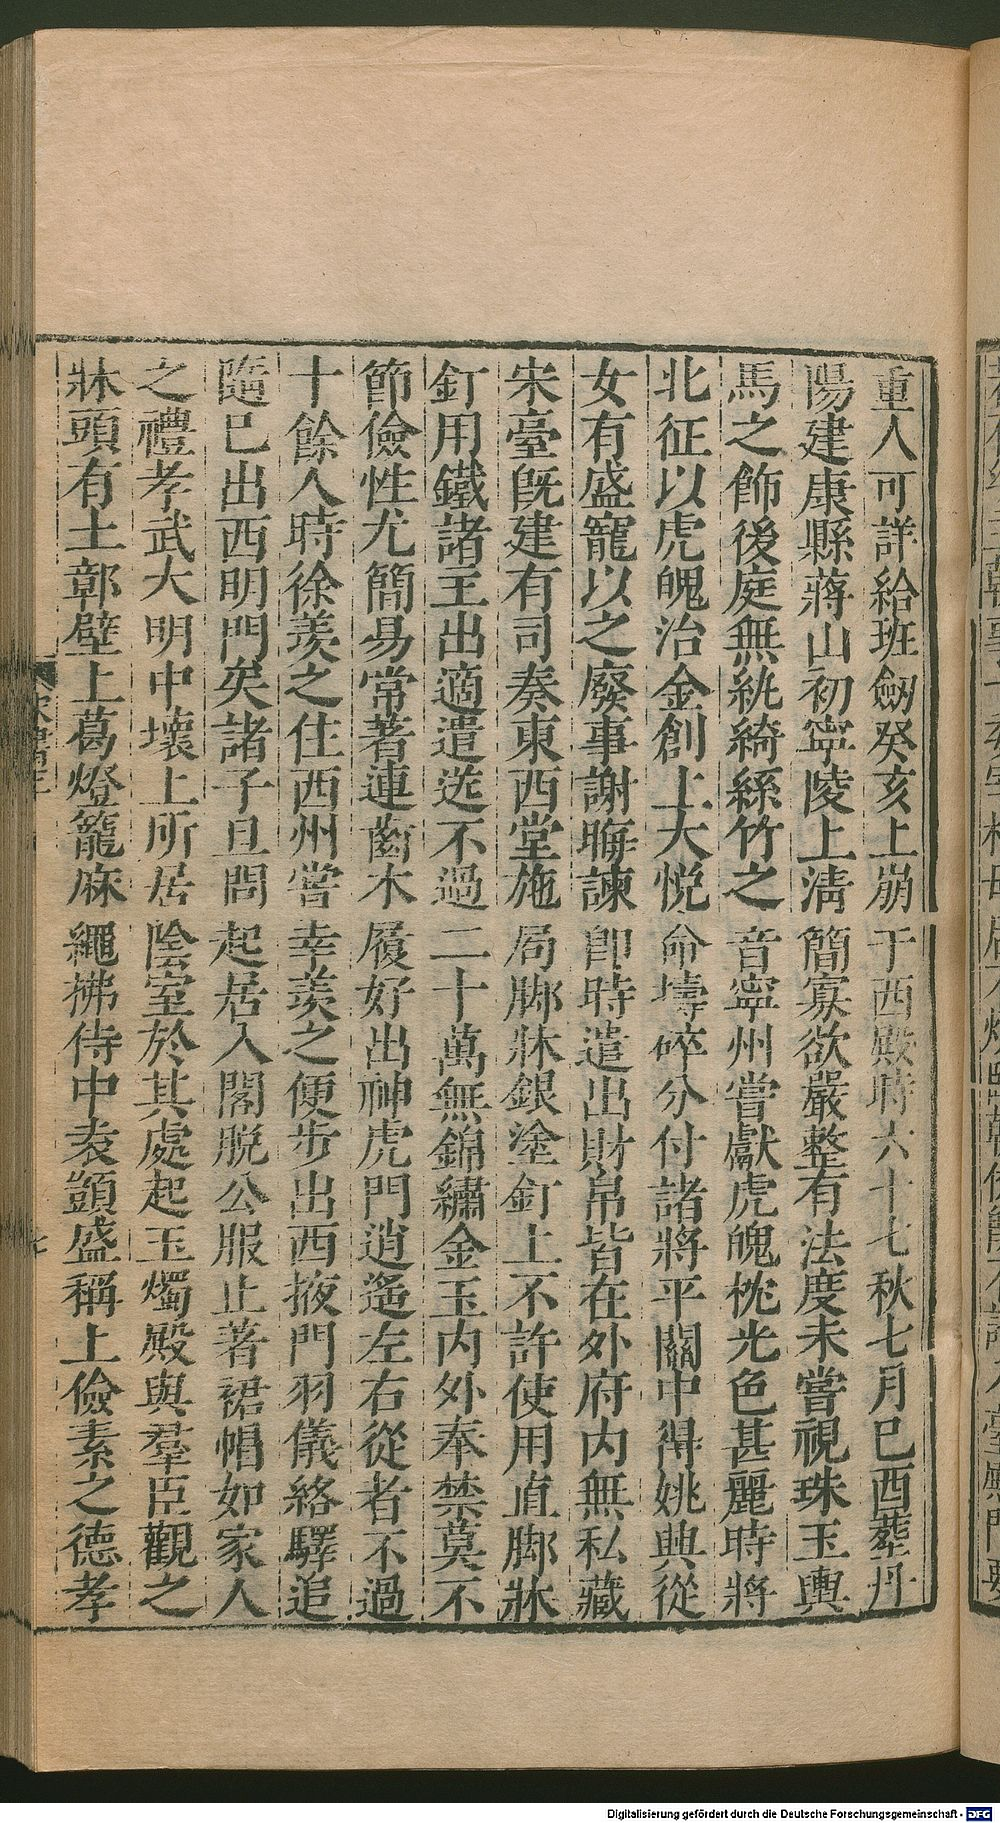 重人可詳給班劒癸亥上崩于西殿時六十七秋七月已酉葬丹
陽建康縣蔣山初寧陵上淸簡寡欲嚴整有法度未嘗視珠玉輿
馬之飾後庭無紈綺絲竹之音寧州嘗獻虎魄枕光色甚麗時將
北征以虎魄治金創上大悅命擣碎分付諸將平關中得姚興從
女有盛寵以之廢事謝晦諫卽時遣出財帛皆在外府内無私藏
宋臺旣建有司奏東西堂施局脚牀銀塗釘上不許使用直脚牀
釘用鐵諸王出適遣送不過二十萬無錦繡金玉内外奉禁莫不
節儉性尤簡易常著連齒木屐好出神虎門逍遙左右從者不過
十餘人時徐羨之住西州嘗幸羨之便步出西掖門羽儀絡驛追
隨已出西明門矣諸子旦問起居入閤脫公服止著裙帽如家人
之禮孝武大明中壞上所居陰室於其處起玉燭殿與羣臣觀之
牀頭有土鄣壁上葛燈籠麻繩拂侍中袁顗盛稱上儉素之德孝
七
Digitalisierung gefördert durch die Deutsche Forschungsgemeinschaft - DFG